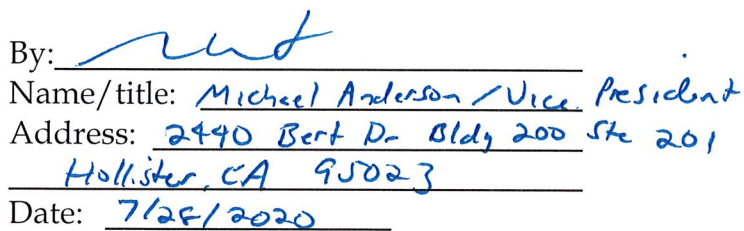 By:
Name/title: Michael Anderson / Vice President
Address: 2440 Bert Dr Bldg 200 Ste 201
Hollister, CA 95023
Date: 7/28/2020